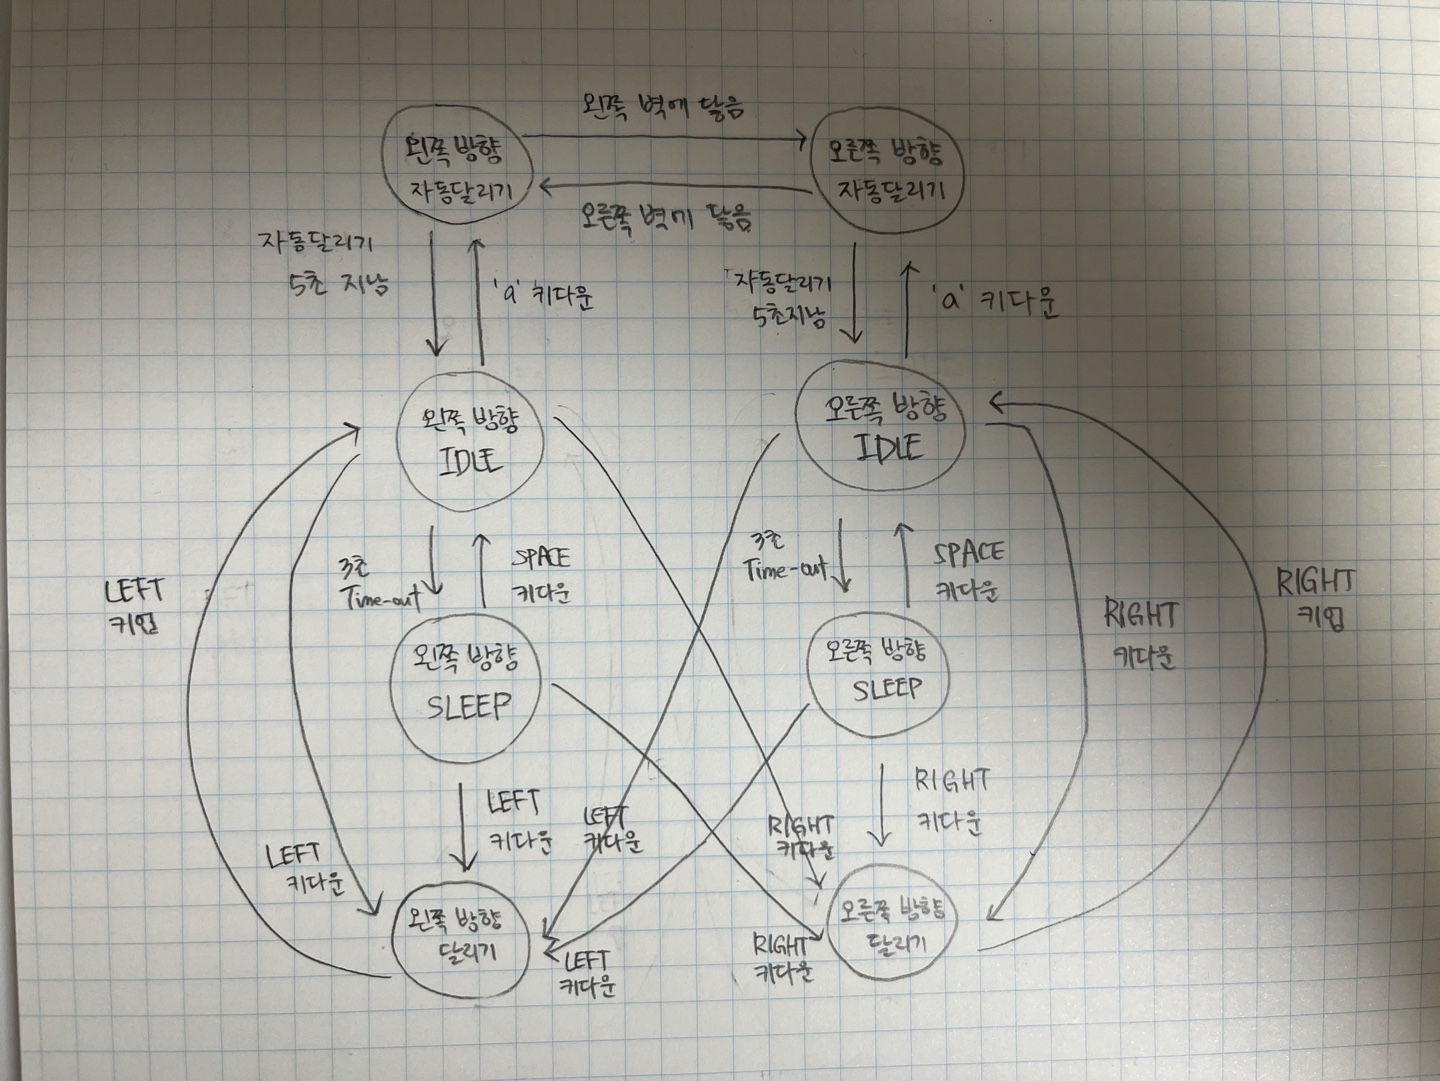 왼쪽 벽에 닿음
왼쪽 방향
자동달리기
오른쪽 방향
자동달리기
오른쪽 벽에 닿음
자동달리기
5초 지남
'a' 키다운
자동달리기
5초지남
'a' 키다운
왼쪽 방향
IDLE
오른쪽 방향
IDLE
3초
Time-out
SPACE
키다운
3초
Time-out
SPACE
키다운
LEFT
키업
RIGHT
키다운
RIGHT
키업
왼쪽 방향
SLEEP
오른쪽 방향
SLEEP
LEFT
키다운
LEFT
키다운
LEFT
키다운
RIGHT
키다운
RIGHT
키다운
왼쪽 방향
달리기
오른쪽 방향
달리기
LEFT
키다운
RIGHT
키다운